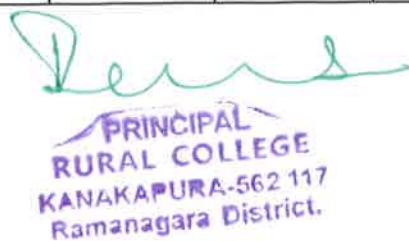 PRINCIPAL
RURAL COLLEGE
KANAKAPURA-562 117
Ramanagara District.